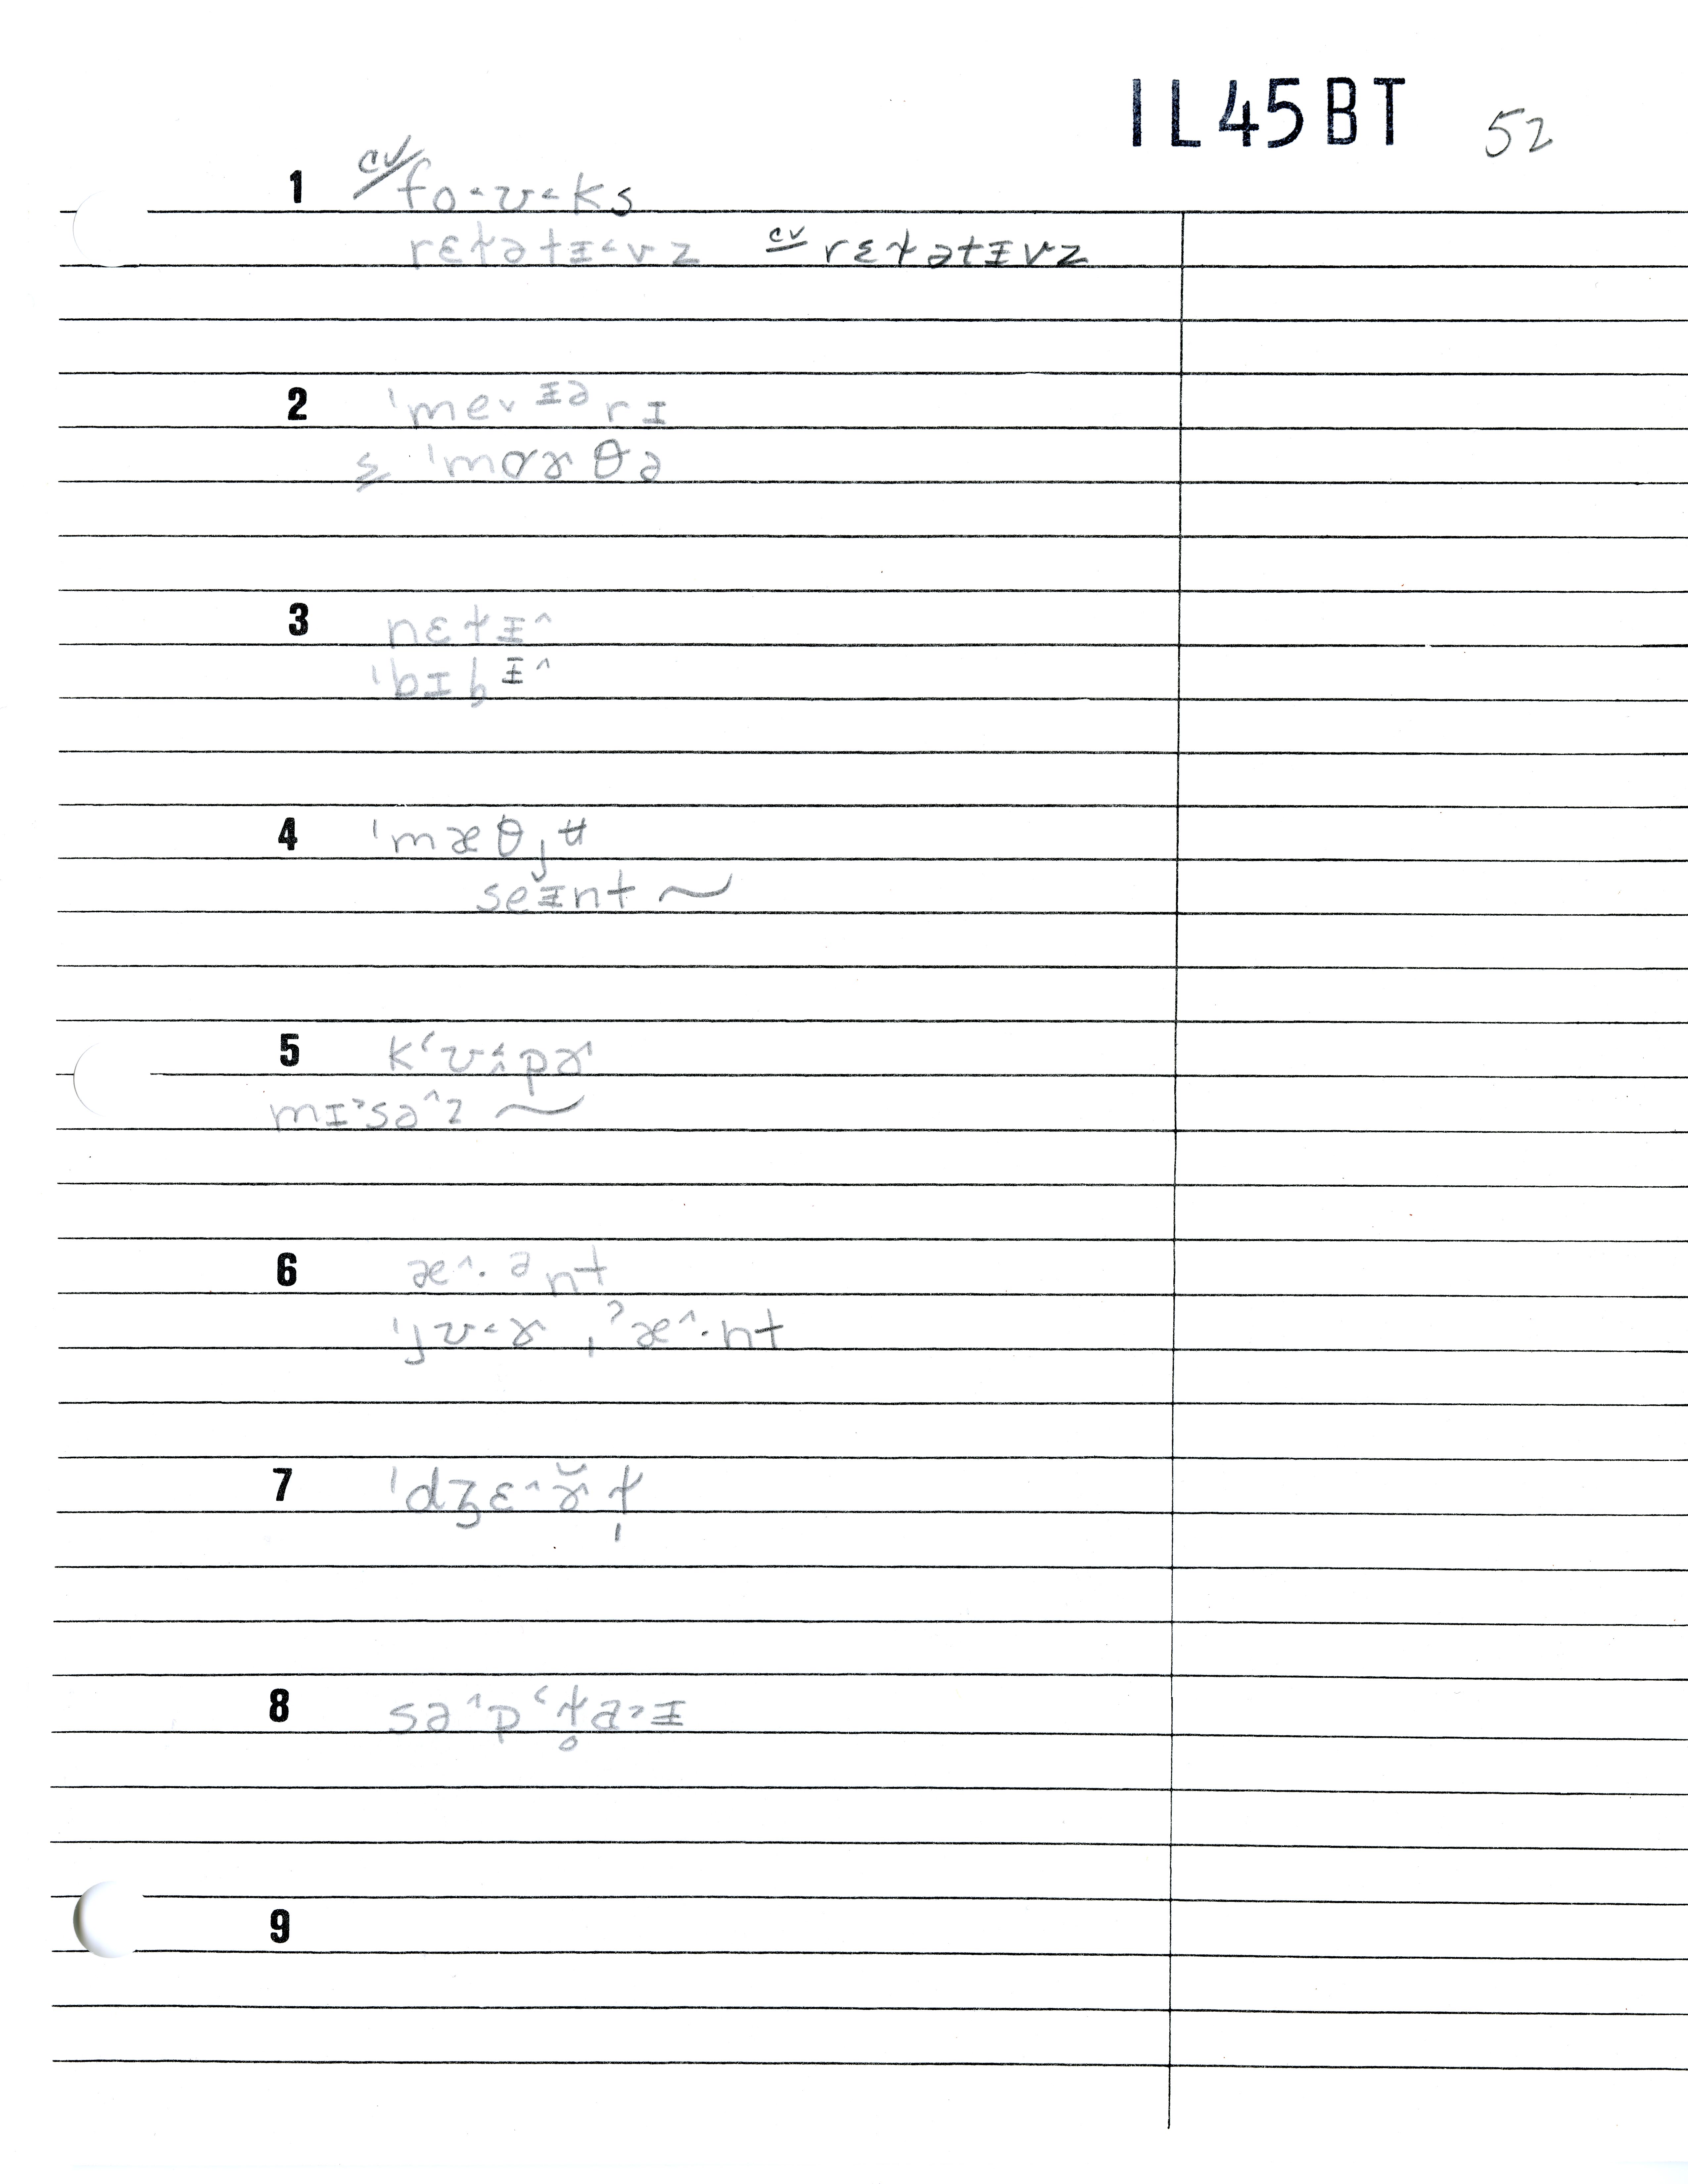 IL45BT 52
1 cv/ fo˂ʊ˂ks
rɛɫətɪ˂vz cv rɛɫətɪvz
2 ˈme˅ɪərɪ
ˈmɑɚθə
3 nɛɫɪ^
ˈbɪbɪ^
4 ˈmæθjʉ
seɪnt ~
5 kʻʊ˂^pɚ
mɪ˃sə^z ~
6 æ^·ənt
ˈjʊ˂ɚ ˌʔæ^·nt
7 ˈdʒɛ^ɚ̆ɫ̩
8 sə^pʻɫ̥a˃ɪ
9